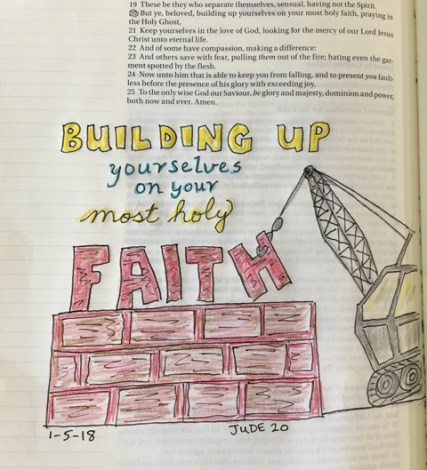 19 These be they who separate themselves, sensual, having not the Spirit.
20 But ye, beloved, building up yourselves on your most holy faith, praying in
the Holy Ghost,
21 Keep yourselves in the love of God, looking for the mercy of our Lord Jesus
Christ unto eternal life.
22 And of some have compassion, making a difference:
23 And others save with fear, pulling them out of the fire; hating even the gar-
ment spotted by the flesh.
24 Now unto him that is able to keep you from falling, and to present you fault-
less before the presence of his glory with exceeding joy,
25 To the only wise God our Saviour, be glory and majesty, dominion and power,
both now and ever. Amen.
BUILDING UP
yourselves
on your
most holy
FAITH
1-5-18
JUDE 20